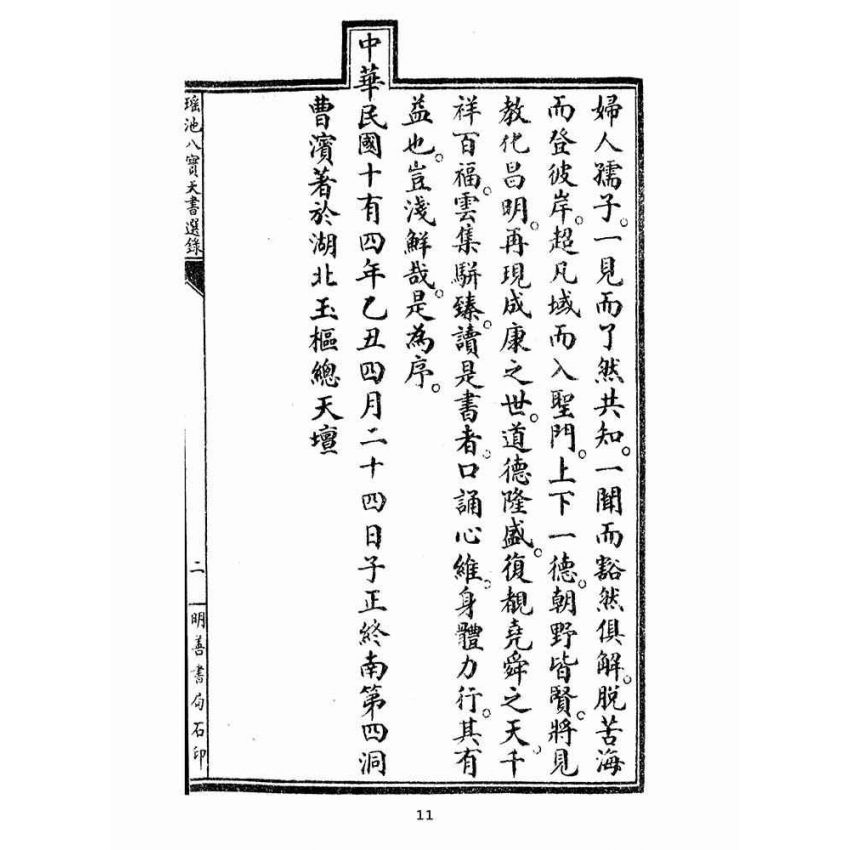 婦人孺子。一見而了然共知。一聞而豁然俱解。脫苦海
而登彼岸。超凡域而入聖門。上下一德。朝野皆賢。將見
教化昌明。再現成康之世。道德隆盛。復覩堯舜之天。千
祥百福。雲集駢臻。讀是書者。口誦心維。身體力行。其有
益也。豈淺鮮哉。是為序。
中華民國十有四年乙丑四月二十四日子正終南第四洞
曹濱著於湖北玉樞總天壇
瑶池八寶天書選錄
二
明善書局石印
11